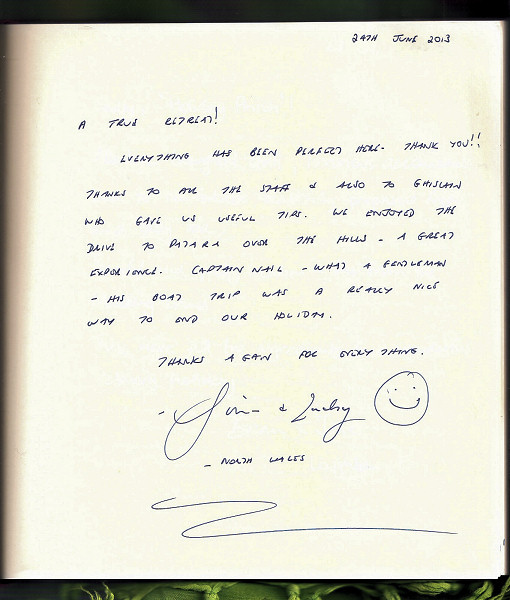 24TH JUNE 2013
A TRUE RETREAT!
EVERYTHING HAS BEEN PERFECT HERE - THANK YOU!!
THANKS TO ALL THE STAFF & ALSO TO GHISLAIN
WHO GAVE US USEFUL TIPS. WE ENJOYED THE
DRIVE TO PATARA OVER THE HILLS - A GREAT
EXPERIENCE. CAPTAIN NAIL - WHAT A GENTLEMAN
- HIS BOAT TRIP WAS A REALLY NICE
WAY TO END OUR HOLIDAY.
THANKS AGAIN FOR EVERYTHING.
- &
- NORTH WALES